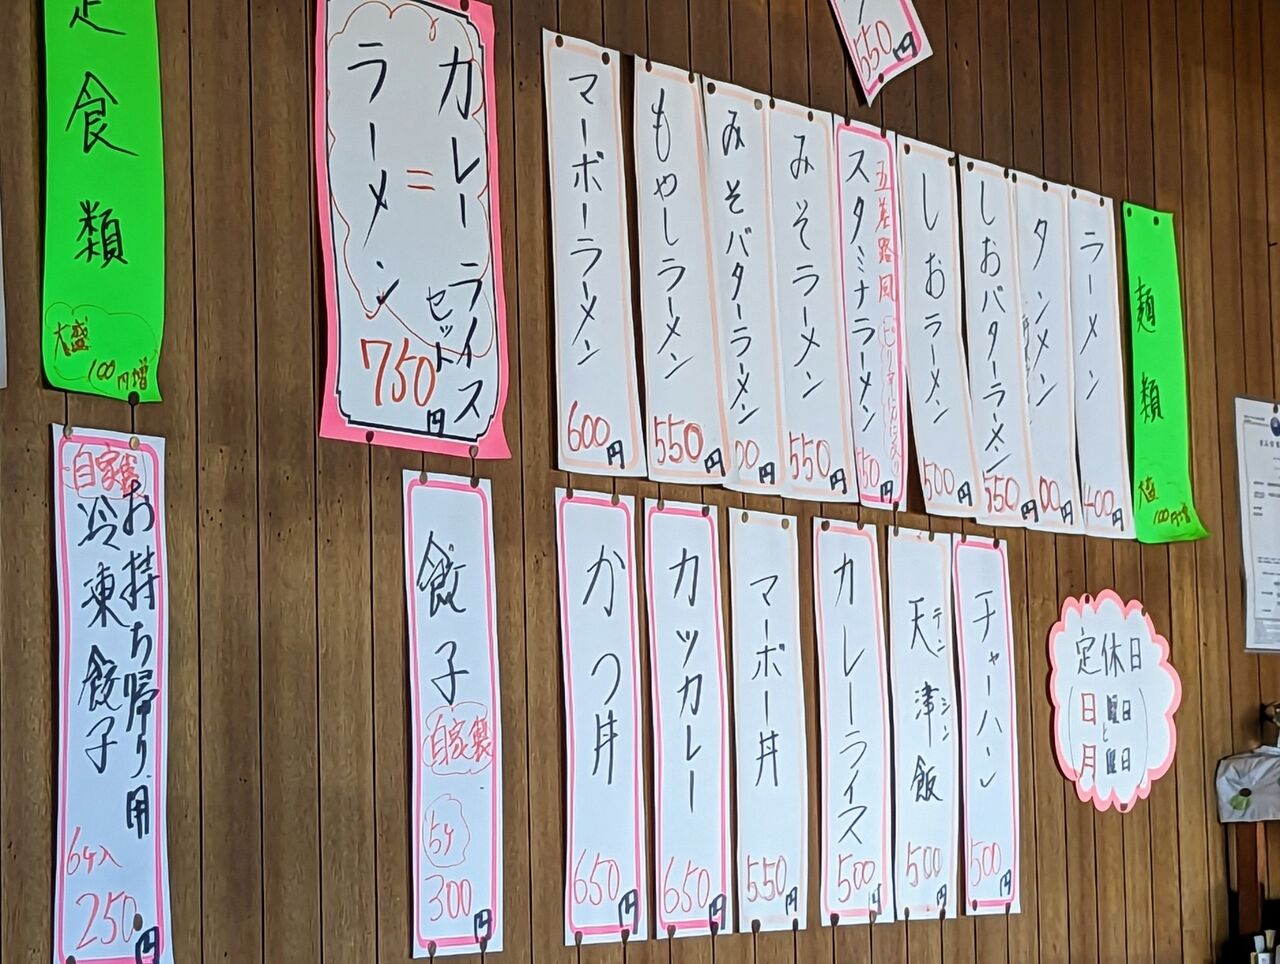 麺類
大盛
100円増
ラーメン
400円
タンメン
00円
しおバターラーメン
550円
しおラーメン
500円
五差路風
スタミナラーメン
50円
みそラーメン
550円
みそバターラーメン
00円
もやしラーメン
550円
マーボーラーメン
600円
550円
カレーライス
=
ラーメン
セット
750円
定食類
大盛
100円増
チャーハン
500円
天津飯
テンシン
500円
カレーライス
500円
マーボー丼
550円
カツカレー
650円
かつ丼
650円
餃子
自家製
5ケ
300円
自家製
お持ち帰り用
冷凍餃子
6ケ入
250円
定休日
日曜日
と
月曜日